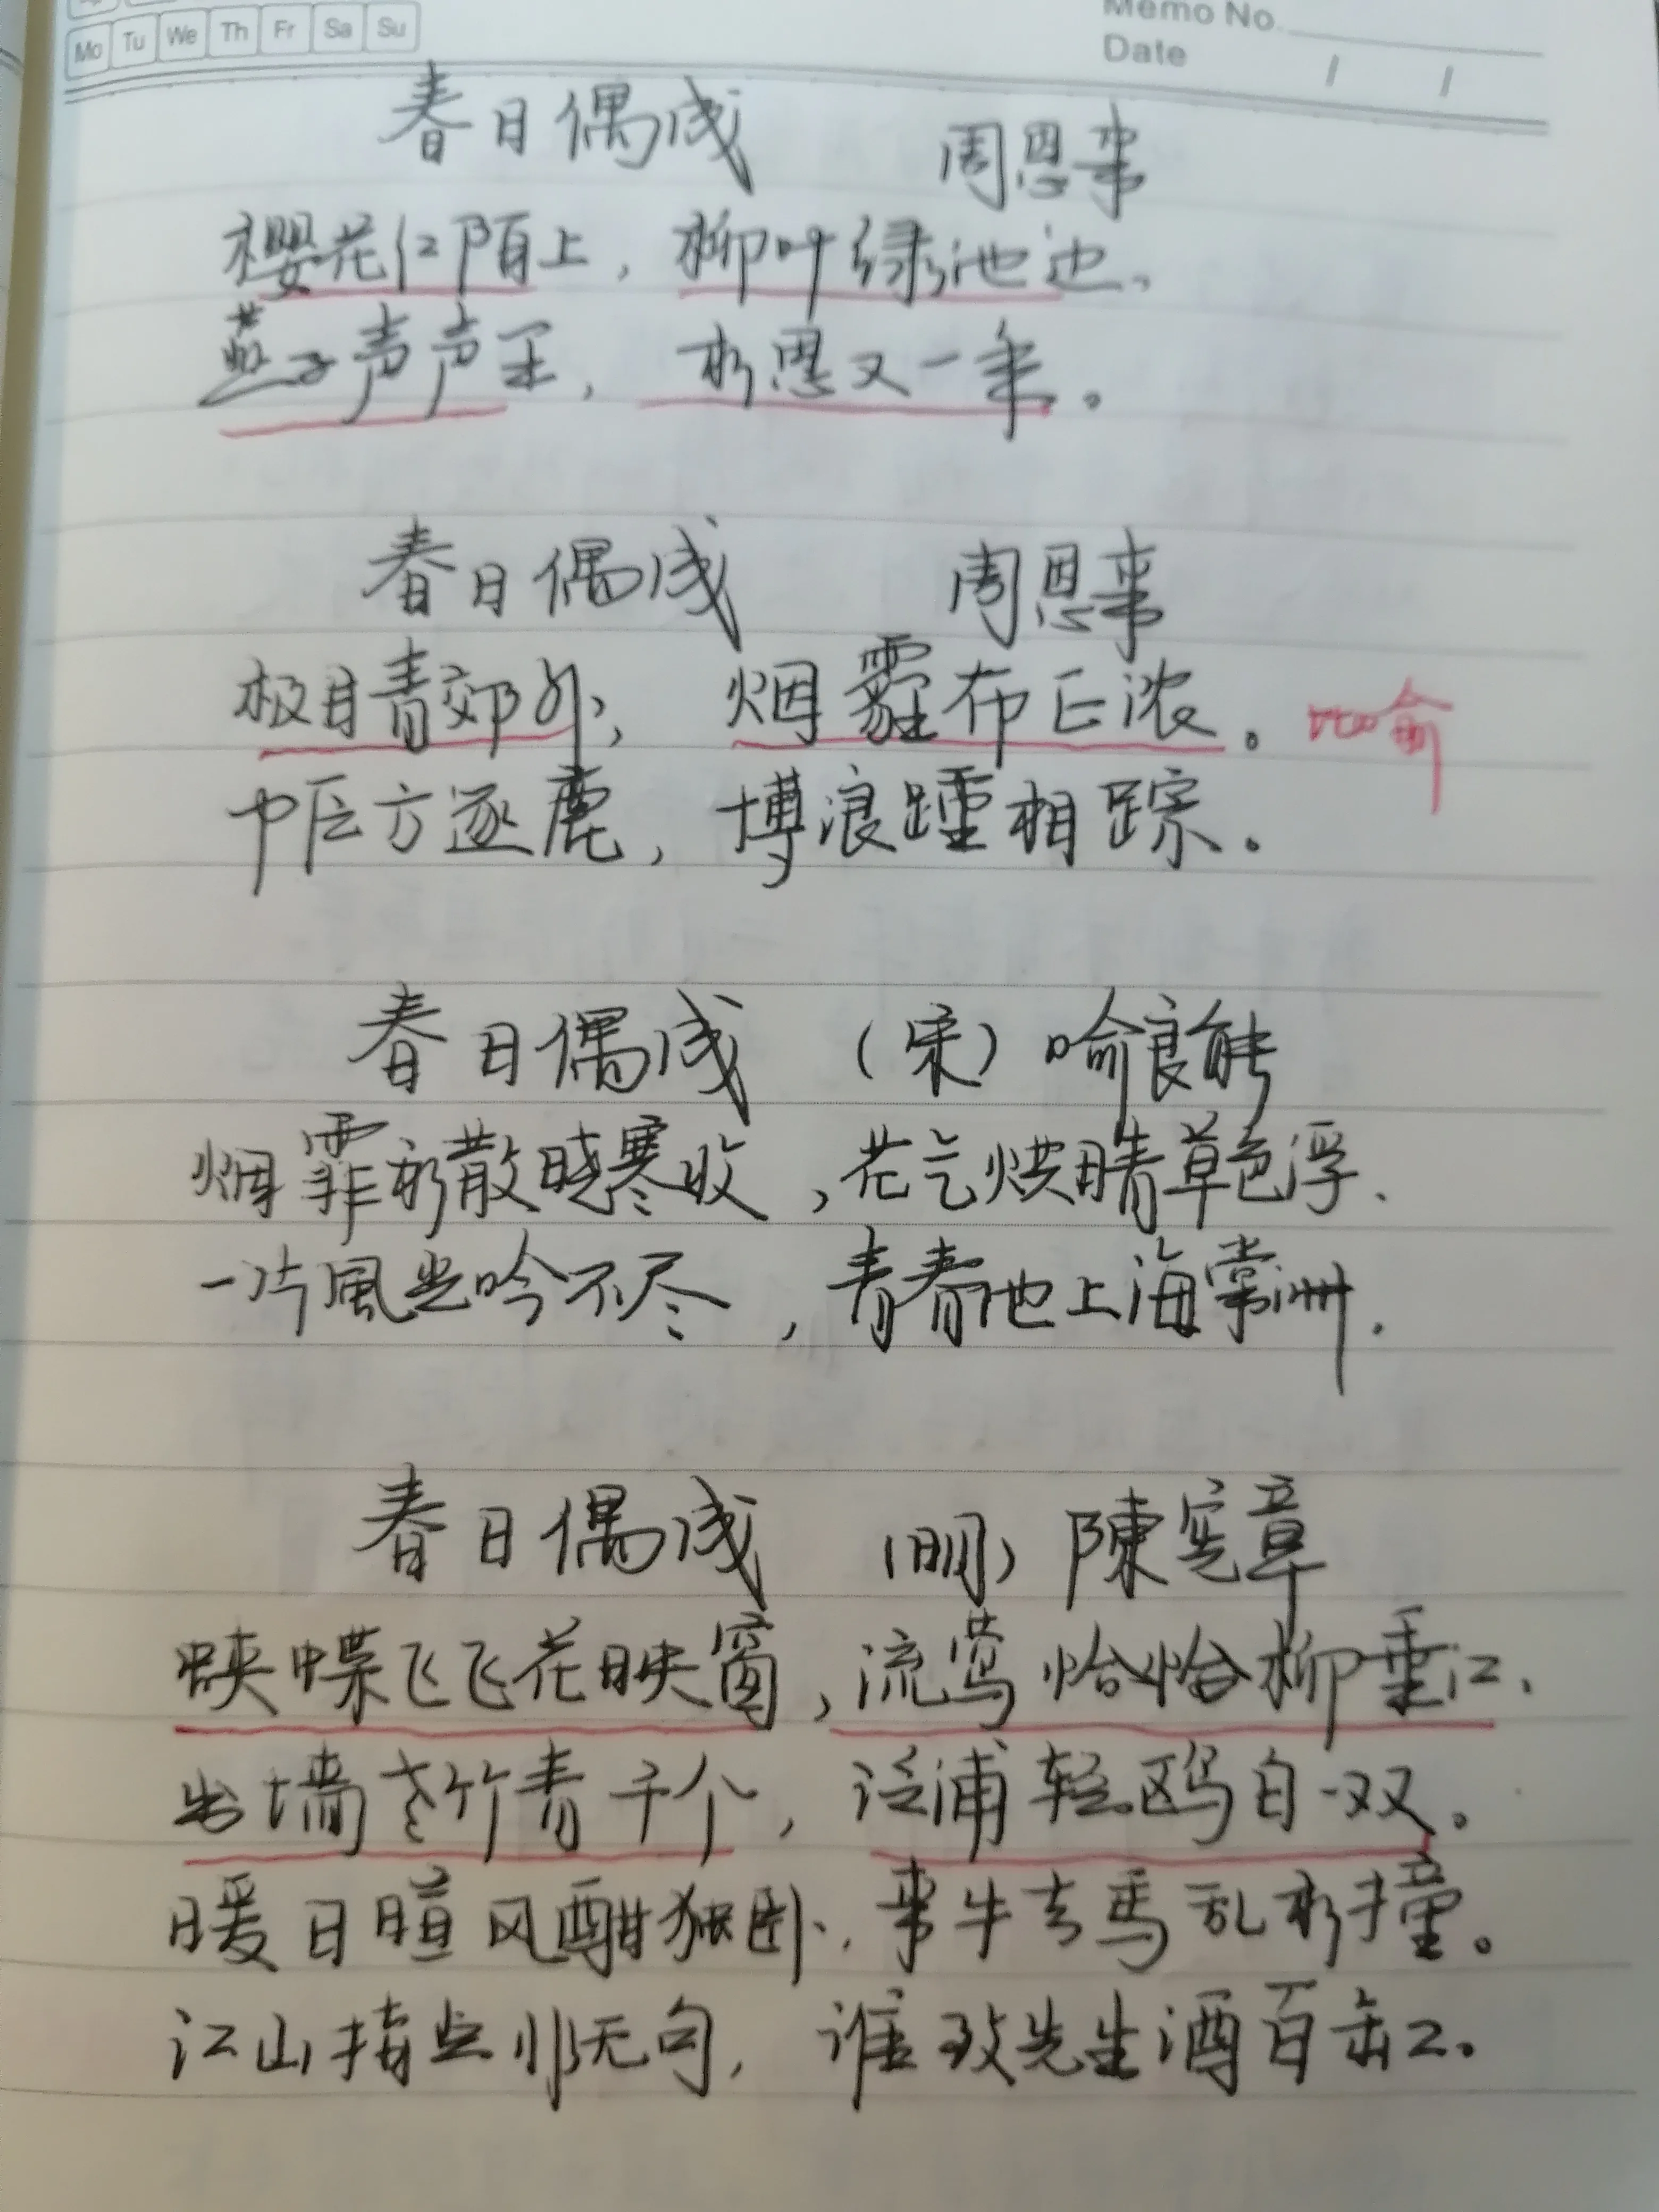 Mo Tu We Th Fr Sa Su
Memo No.
Date / /
春日偶成 周恩来
樱花红陌上，柳叶绿池边，
燕子声声里，相思又一年。
春日偶成 周恩来
极目青郊外，烟霾布正浓。比喻
中原方逐鹿，博浪踵相踪。
春日偶成 （宋）喻良能
烟霏初散晓寒收，花气烘晴草色浮，
一片風光吟不尽，青春池上海棠洲。
春日偶成 （明）陳宪章
蛱蝶飞飞花映窗，流莺恰恰柳垂江，
出墙老竹青千个，泛浦轻鸥白一双。
暖日暄风酣独卧，来牛去马乱相撞。
江山指点非无句，谁致先生酒百缸。